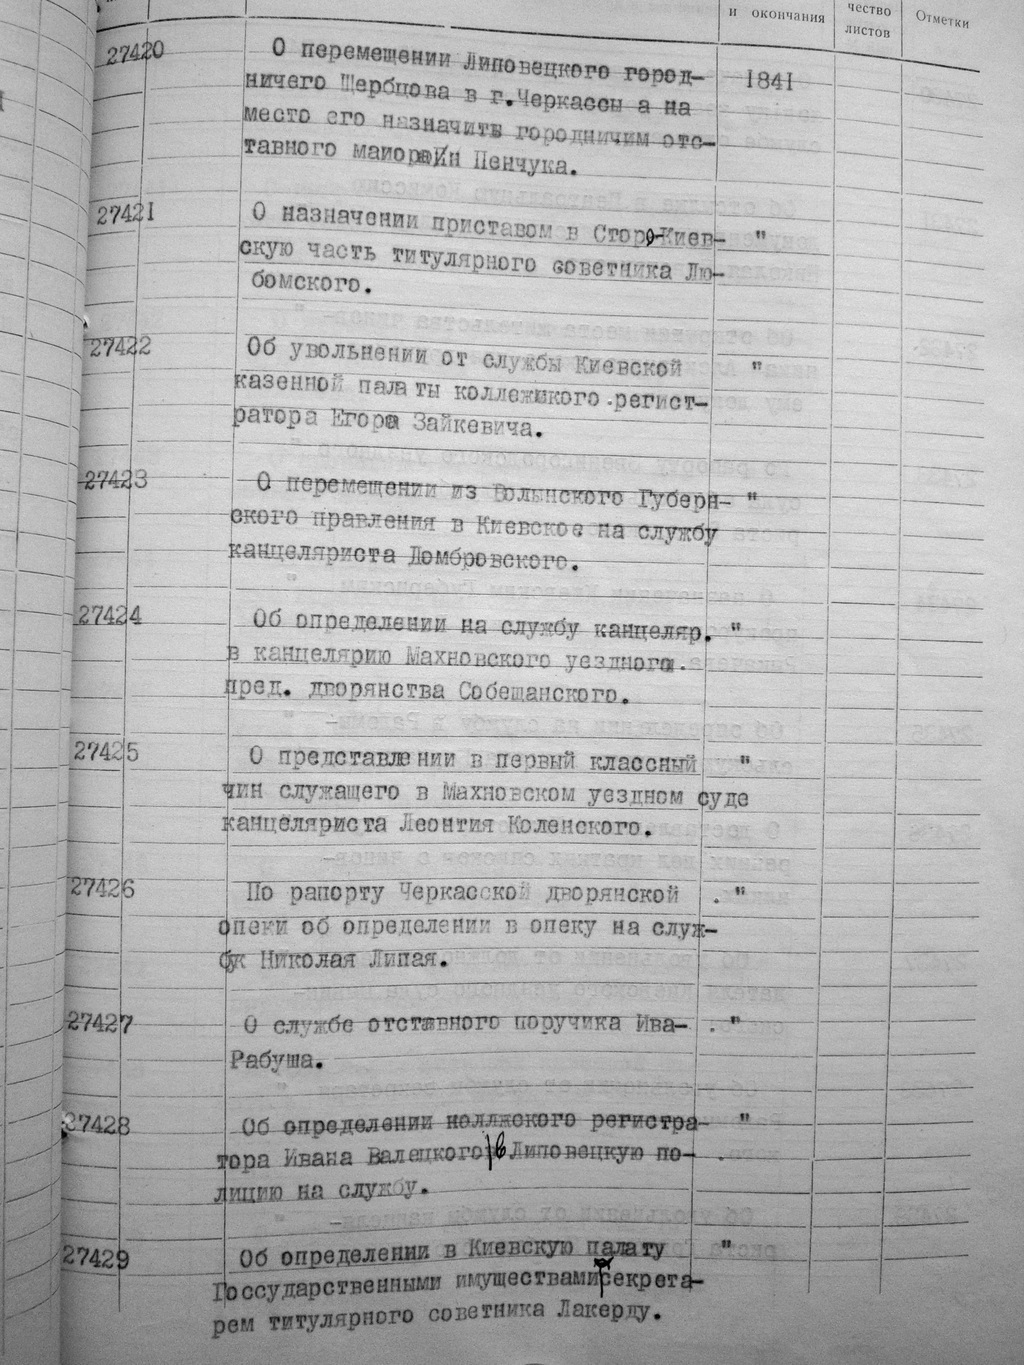 и окончания
чество
листов
Отметки
27420 О перемещении Липовецкого город- 1841
ничего Щербцова в г.Черкассы а на
место его назначить городничим отс-
тавного Пенчука.
27421 О назначении приставом в Старо-Киев- "
скую часть титулярного советника Лю-
бомского.
27422 Об увольнении от службы Киевской "
казенной палаты коллежского регист-
ратора Егора Зайкевича.
27423 О перемещении из Волынского Губерн- "
ского правления в Киевское на службу
канцеляриста Домбровского.
27424 Об определении на службу канцеляр. "
в канцелярию Махновского уездного.
пред. дворянства Собещанского.
27425 О представлении в первый классный "
чин служащего в Махновском уездном суде
канцеляриста Леонтия Коленского.
27426 По рапорту Черкасской дворянской . "
опеки об определении в опеку на служ-
бу Николая Липая.
27427 О службе отставного поручика Ива- . "
Рабуша.
27428 Об определении коллжского регистра- "
тора Ивана Валецкого в Липовецкую по-
лицию на службу.
27429 Об определении в Киевскую палату "
Государственными имуществами секрета-
рем титулярного советника Лакерду.